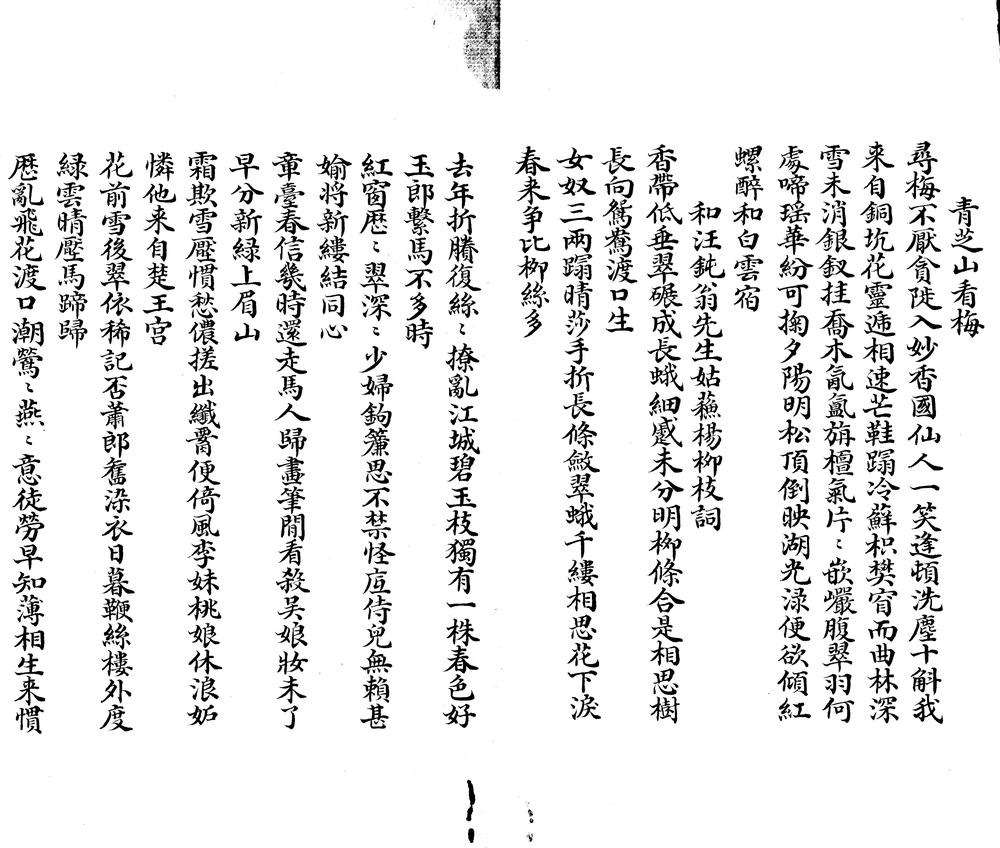 青芝山看梅
尋梅不厭貪陡入妙香國仙人一笑逢頓洗塵十斛我
来自銅坑花靈遞相速芒鞋蹋冷蘚枳樊窅而曲林深
雪未消銀釵挂喬木氤氳旃檀氣片〻嵌巖腹翠羽何
處啼瑶華紛可掬夕陽明松頂倒映湖光渌便欲傾紅
螺醉和白雲宿
和汪鈍翁先生姑蘓楊柳枝詞
香帶低垂翠碾成長蛾細蹙未分明柳條合是相思樹
長向鴛鴦渡口生
女奴三兩蹋晴莎手折長條斂翠蛾千縷相思花下淚
春来爭比柳絲多
去年折賸復絲〻撩亂江城碧玉枝獨有一株春色好
玉郎繫馬不多時
紅窗歴〻翠深〻少婦鉤簾思不禁怪底侍兒無賴甚
婾將新縷結同心
章臺春信幾時還走馬人歸畫筆閒看殺吴娘妝未了
早分新緑上眉山
霜欺雪壓慣愁儂搓出纖罥便倚風李妹桃娘休浪妬
憐他来自楚王宫
花前雪後翠依稀記否蕭郎舊染衣日暮鞭絲樓外度
緑雲晴壓馬蹄歸
歴亂飛花渡口潮鶯〻燕〻意徒勞早知薄相生来慣